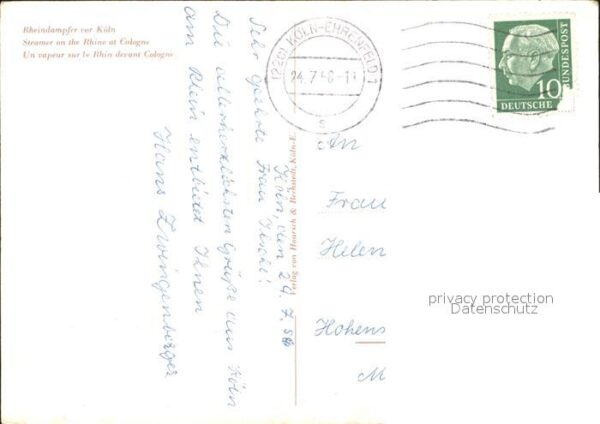 Rheindampfer vor Köln
Steamer on the Rhine at Cologne
Un vapeur sur le Rhin devant Cologne
(22c) KÖLN-EHRENFELD 1
24.7.56-1
s
10
DEUTSCHE
BUNDESPOST
Köln, den 24.7.56
Sehr geehrte Frau
Die allerherzlichsten Grüße aus Köln
am Rhein entbietet Ihnen
Hans Zwingenberger
Verlag von Hoursch & Bechstedt, Köln
An
Frau
Helen
Hohens
M
privacy protection
Datenschutz